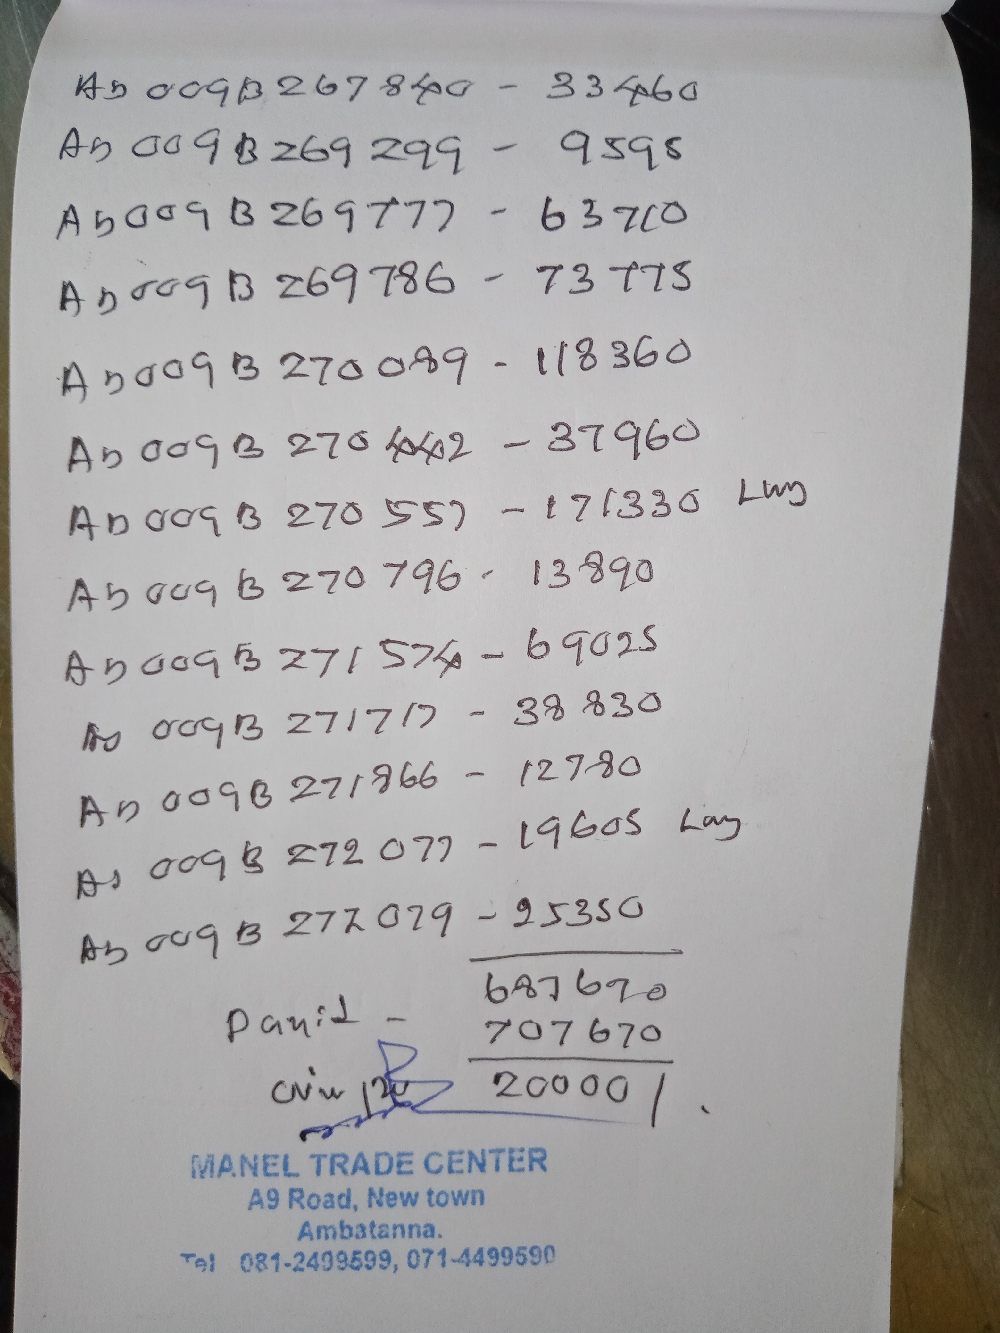 AD 009B 267840 - 33460
AD 009B 269299 - 9595
AD 009B 269777 - 63710
AD 009B 269786 - 73775
AD 009B 270089 - 118360
AD 009B 270442 - 37960
AD 009B 270557 - 171330
AD 009B 270796 - 13890
AD 009B 271574 - 69025
AD 009B 271717 - 38830
AD 009B 271866 - 12780
AD 009B 272077 - 19605
AD 009B 272079 - 25350
687670
- 707670
20000/.
MANEL TRADE CENTER
A9 Road, New town
Ambatanna.
Tel 081-2499599, 071-4499590